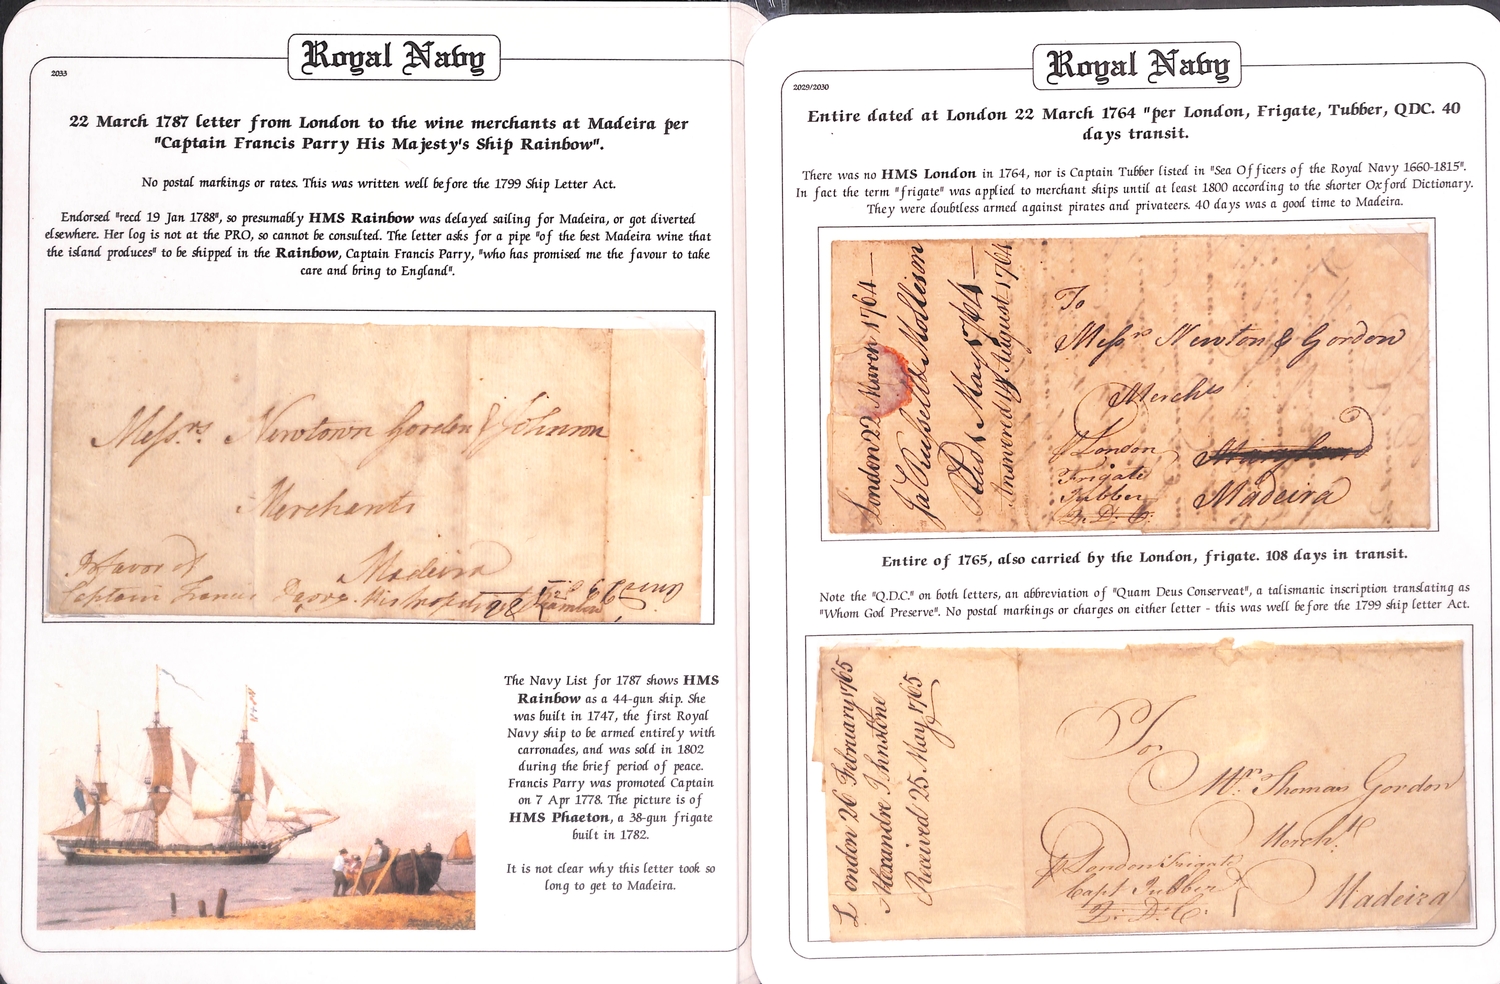 Royal Navy
2033
22 March 1787 letter from London to the wine merchants at Madeira per
"Captain Francis Parry His Majesty's Ship Rainbow".
No postal markings or rates. This was written well before the 1799 Ship Letter Act.
Endorsed "recd 19 Jan 1788", so presumably HMS Rainbow was delayed sailing for Madeira, or got diverted
elsewhere. Her log is not at the PRO, so cannot be consulted. The letter asks for a pipe "of the best Madeira wine that
the island produces" to be shipped in the Rainbow, Captain Francis Parry, "who has promised me the favour to take
care and bring to England".
Messrs. Newtown Gordon & Johnson
Merchants
Madeira
Favor of
Captain Francis
The Navy List for 1787 shows HMS
Rainbow as a 44-gun ship. She
was built in 1747, the first Royal
Navy ship to be armed entirely with
carronades, and was sold in 1802
during the brief period of peace.
Francis Parry was promoted Captain
on 7 Apr 1778. The picture is of
HMS Phaeton, a 38-gun frigate
built in 1782.
It is not clear why this letter took so
long to get to Madeira.
Royal Navy
2029/2030
Entire dated at London 22 March 1764 "per London, Frigate, Tubber, QDC. 40
days transit.
There was no HMS London in 1764, nor is Captain Tubber listed in "Sea Officers of the Royal Navy 1660-1815".
In fact the term "frigate" was applied to merchant ships until at least 1800 according to the shorter Oxford Dictionary.
They were doubtless armed against pirates and privateers. 40 days was a good time to Madeira.
London 22 March 1764
Ja Russell & Mollison
May 1764
Answered 14 August 1764
To
Messrs Newton & Gordon
Merchts
Maryland
Madeira
London
Frigate
Tubber
Q. D. C.
Entire of 1765, also carried by the London, frigate. 108 days in transit.
Note the "Q.D.C." on both letters, an abbreviation of "Quam Deus Conserveat", a talismanic inscription translating as
"Whom God Preserve". No postal markings or charges on either letter - this was well before the 1799 ship letter Act.
London 26 February 1765
Alexandre Johnstone
Received 25 May 1765
To
Mr. Thomas Gordon
Mercht.
Madeira
London Frigate
Capt Tubber
Q. D. C.